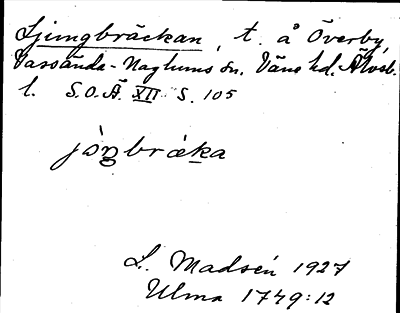 Ljungbräckan, t. å Överby,
Vassända-Naglums sn. Väne hd. Älvsb.
l. S.O.Ä. XII s. 105
L. Madsén 1927
Ulma 1749:12